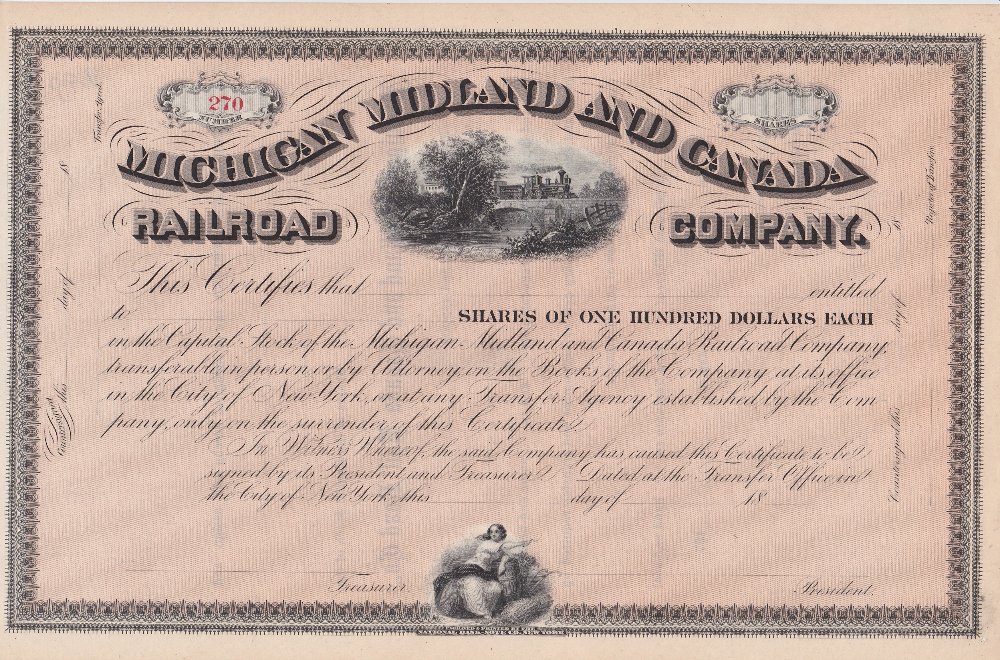 270
NUMBER
SHARES
MICHIGAN MIDLAND AND CANADA
RAILROAD COMPANY.
This Certifies that entitled
to SHARES OF ONE HUNDRED DOLLARS EACH
in the Capital Stock of the Michigan Midland and Canada Railroad Company,
transferable in person or by Attorney on the Books of the Company at its office
in the City of New York, or at any Transfer Agency established by the Com
pany, only on the surrender of this Certificate.
In Witness Whereof, the said Company has caused this Certificate to be
signed by its President and Treasurer. Dated at the Transfer Office in
the City of New York this day of 18
Treasurer. President.
NATIONAL BANK NOTE CO. NEW YORK
Countersigned this day of 18
Transfer Agent
Countersigned this day of 18
Register of Transfers